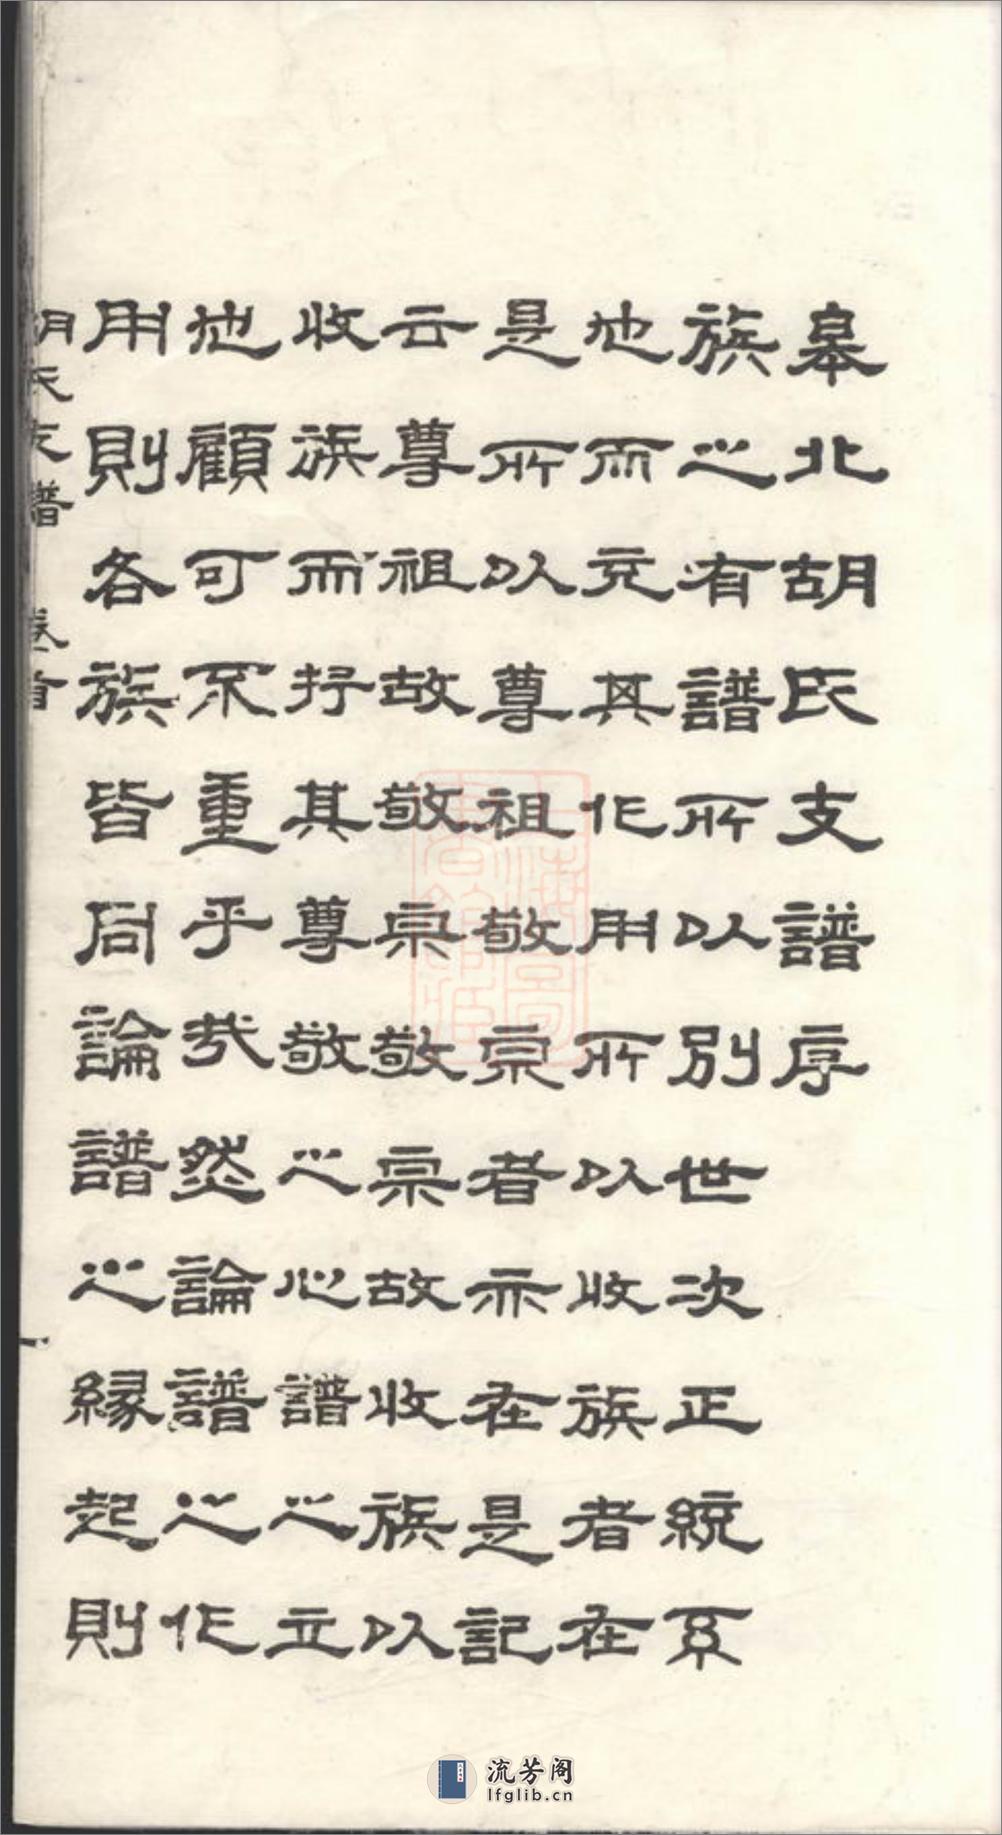 皋北胡氏支譜序
族之有譜所以別世次正統系
也而充其作用所以收族者在
是所以尊祖敬宗者亦在是記
云尊祖故敬宗敬宗故收族以
收族而抒其尊敬之心譜之立
也顧可不重乎哉然論譜之作
用則各族皆同論譜之緣起則
胡氏支譜 卷首 一
上海圖書館藏
流芳阁
lfglib.cn